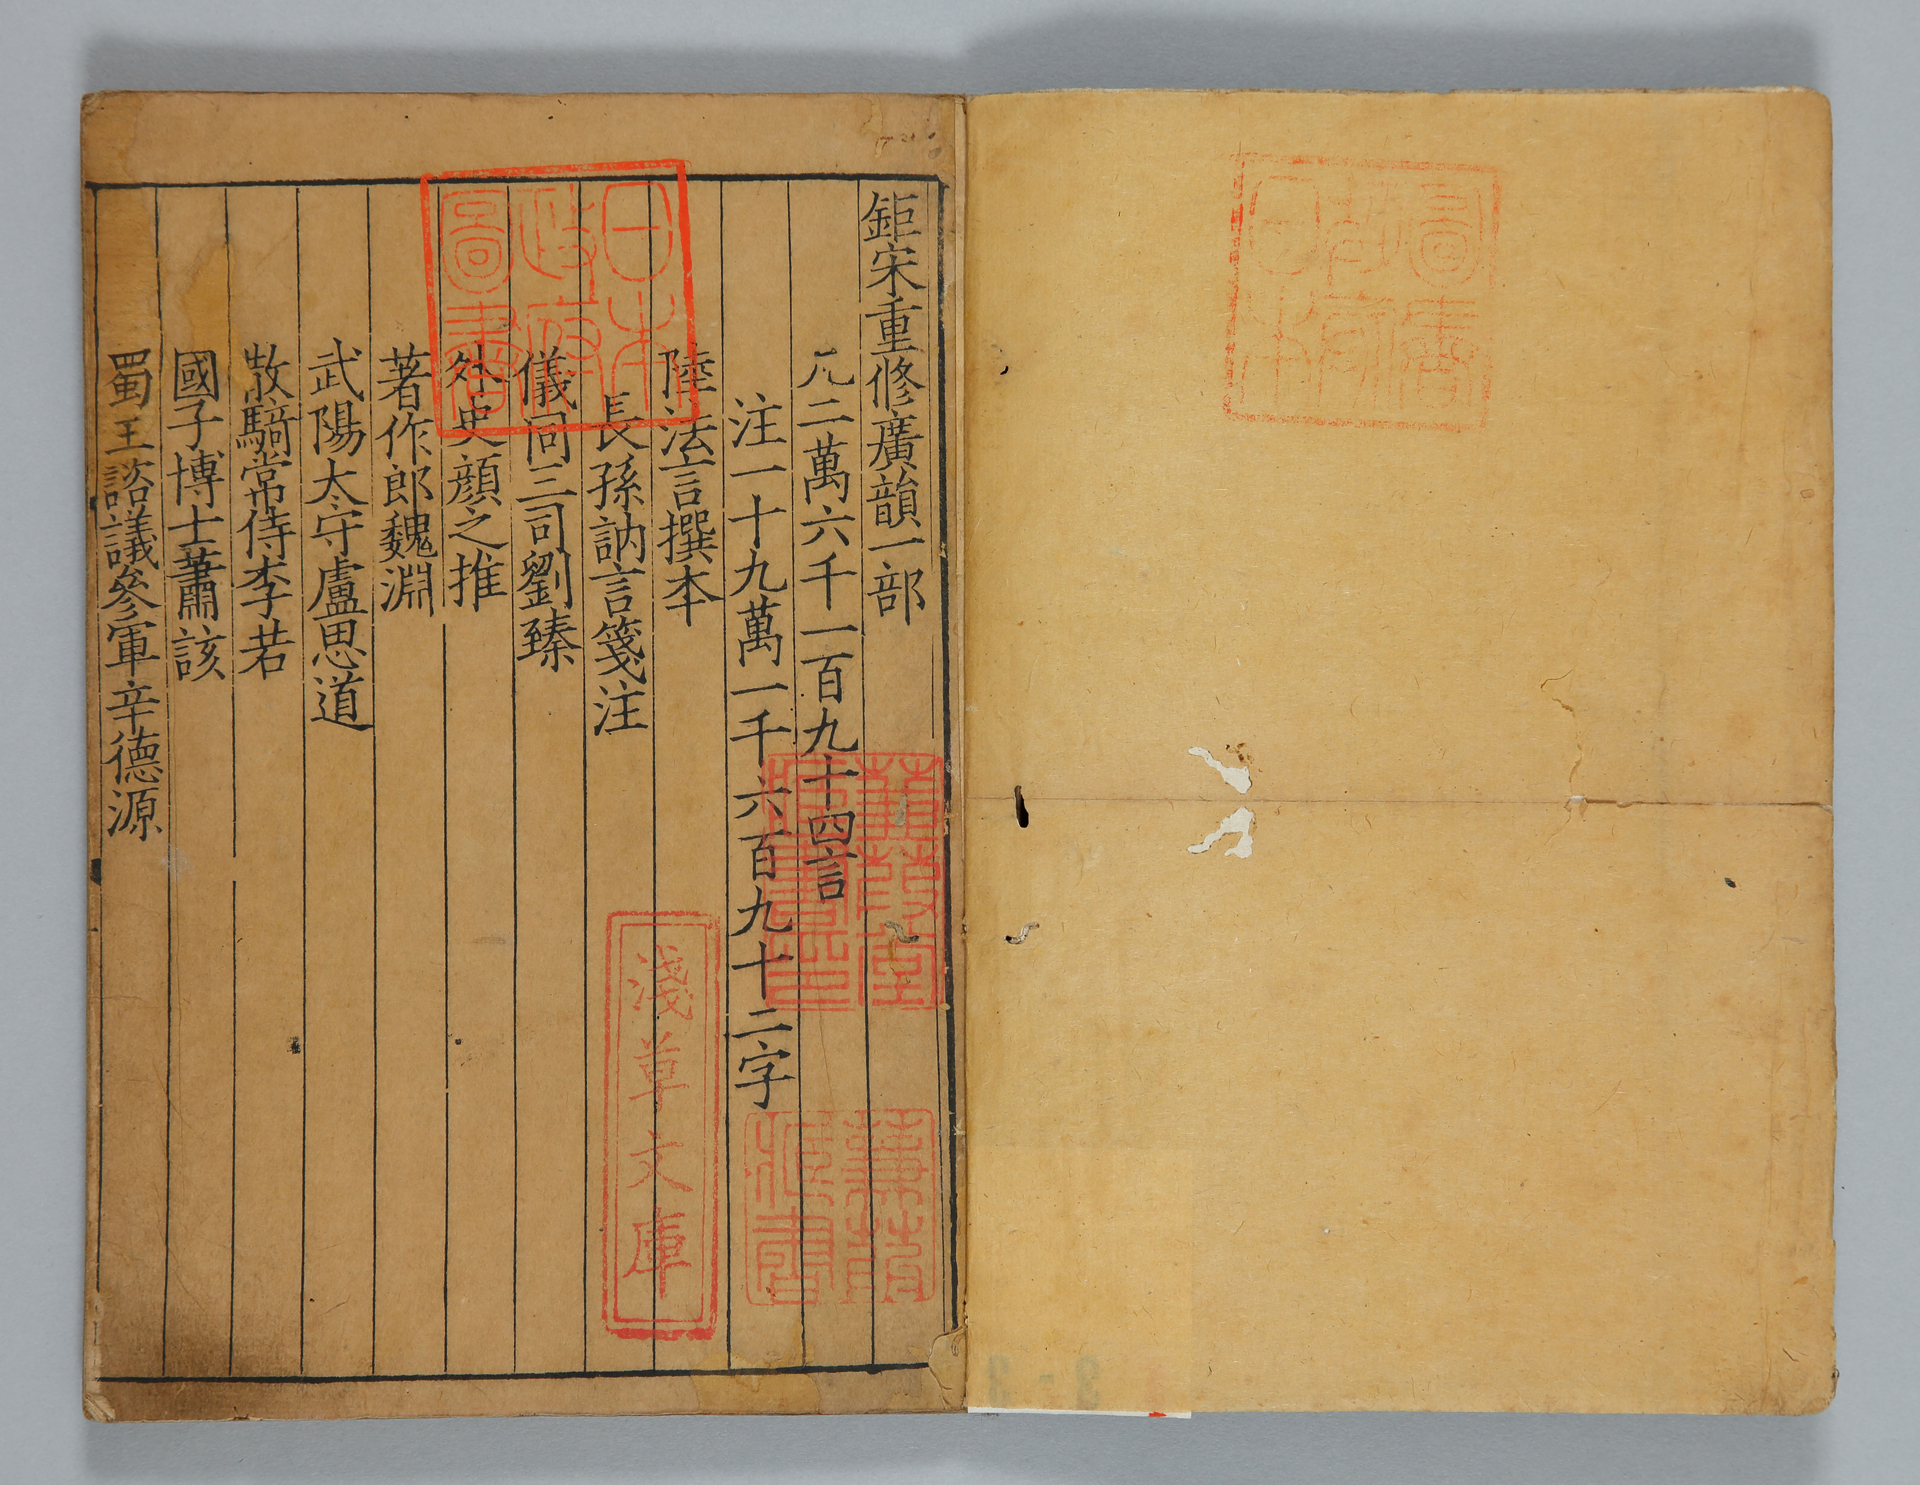 鉅宋重修廣韻一部
凡二萬六千一百九十四言
注一十九萬一千六百九十二字
陸法言撰本
長孫訥言箋注
儀同三司劉臻
外史顏之推
著作郎魏淵
武陽太守盧思道
散騎常侍李若
國子博士蕭該
蜀王諮議參軍辛德源
日本
政府
圖書
淺草文庫
蒹葭堂
藏書印
蒹葭
藏書